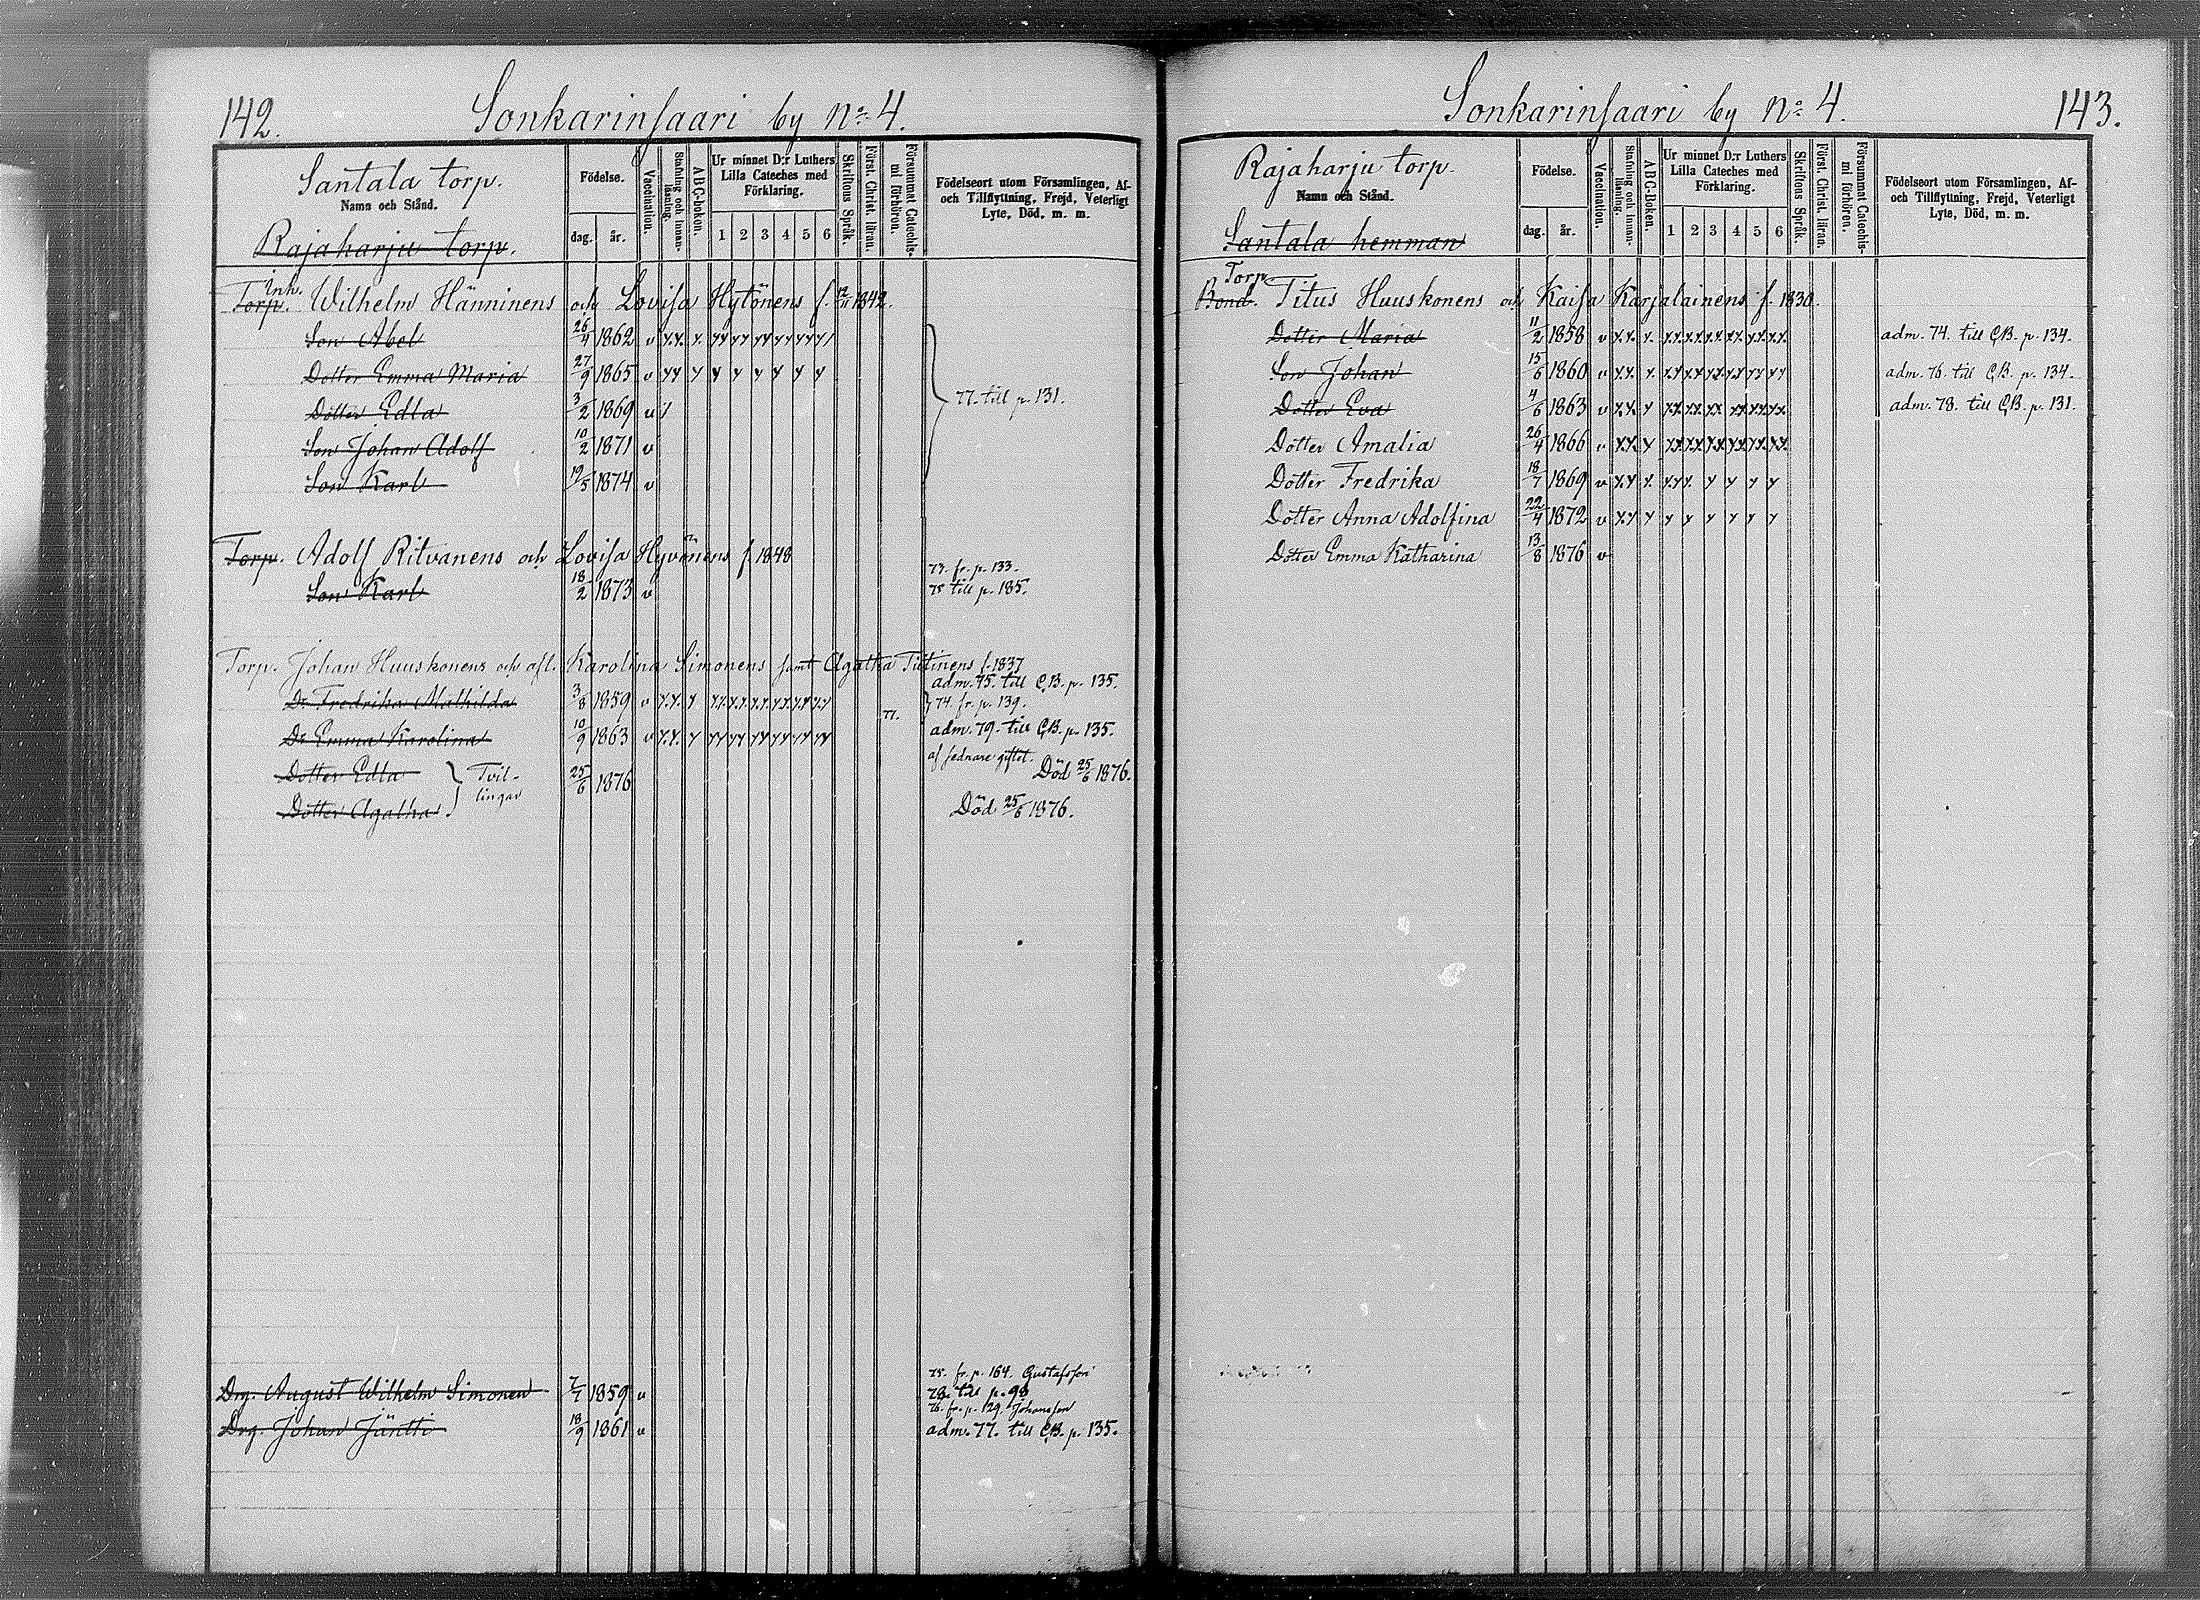 142.
Sonkarinsaari by No 4.
Santala torp.
Namn och Stånd.
Rajaharju torp.
Födelse.
dag. år.
Vaccination.
Stafning och innan-läsning.
ABC-boken.
Ur minnet D:r Luthers
Lilla Cateches med
Förklaring.
1 2 3 4 5 6
Skriftens Språk.
Först. Christ. läran.
Försummat Catechis-
mi förhören.
Födelseort utom Församlingen, Af-
och Tillflyttning, Frejd, Veterligt
Lyte, Död, m. m.
Inh.
Torp. Wilhelm Hänninens och Lovisa Hytönens f. 1842.
Son Abel 26/4 1862 v
Dotter Emma Maria 27/9 1865 v
Dotter Edla 3/2 1869 v 77. till p. 131.
Son Johan Adolf 10/2 1871 v
Son Karl 19/5 1874 v
Torp. Adolf Ritvanens och Lovisa Hyvönens f. 1848
73. fr. p. 133.
Son Karl 18/2 1873 v 75 till p. 185.
Torp. Johan Huuskonens och afl. Karolina Simonens samt Agatha Tiitinens f. 1837
adm. 75. till C.B. p. 135.
Dr Fredrika Mathilda 3/8 1859 v 74. fr. p. 139.
77.
Dr Emma Karolina 10/9 1863 v adm. 79. till C.B. p. 135.
af sednare giftet.
Dotter Edla Tvil- 25/6 1876 Död 25/6 1876.
lingar
Dotter Agatha Död 25/6 1876.
75. fr. p. 164. Gustafsson
Drg. August Wilhelm Simonen 7/7 1859 v 78. till p. 98
76. fr. p. 129. Johansson
Drg. Johan Jäntti 18/9 1861 v adm. 77. till C.B. p. 135.
Sonkarinsaari by No 4.
143.
Rajaharju torp.
Namn och Stånd.
Santala hemman
Födelse.
dag. år.
Vaccination.
Stafning och innan-läsning.
ABC-Boken.
Ur minnet D:r Luthers
Lilla Cateches med
Förklaring.
1 2 3 4 5 6
Skriftens Språk.
Först. Christ. läran.
Försummat Catechis-
mi förhören.
Födelseort utom Församlingen, Af-
och Tillflyttning, Frejd, Veterligt
Lyte, Död, m. m.
Torp.
Bond. Titus Huuskonens och Kaisa Karjalainens f. 1830.
Dotter Maria 11/2 1858 v adm. 74. till C.B. p. 134.
Son Johan 15/6 1860 v adm. 76. till C.B. p. 134.
Dotter Eva 4/6 1863 v adm. 78. till C.B. p. 131.
Dotter Amalia 26/4 1866 v
Dotter Fredrika 18/7 1869 v
Dotter Anna Adolfina 22/4 1872 v
Dotter Emma Katharina 13/8 1876 v